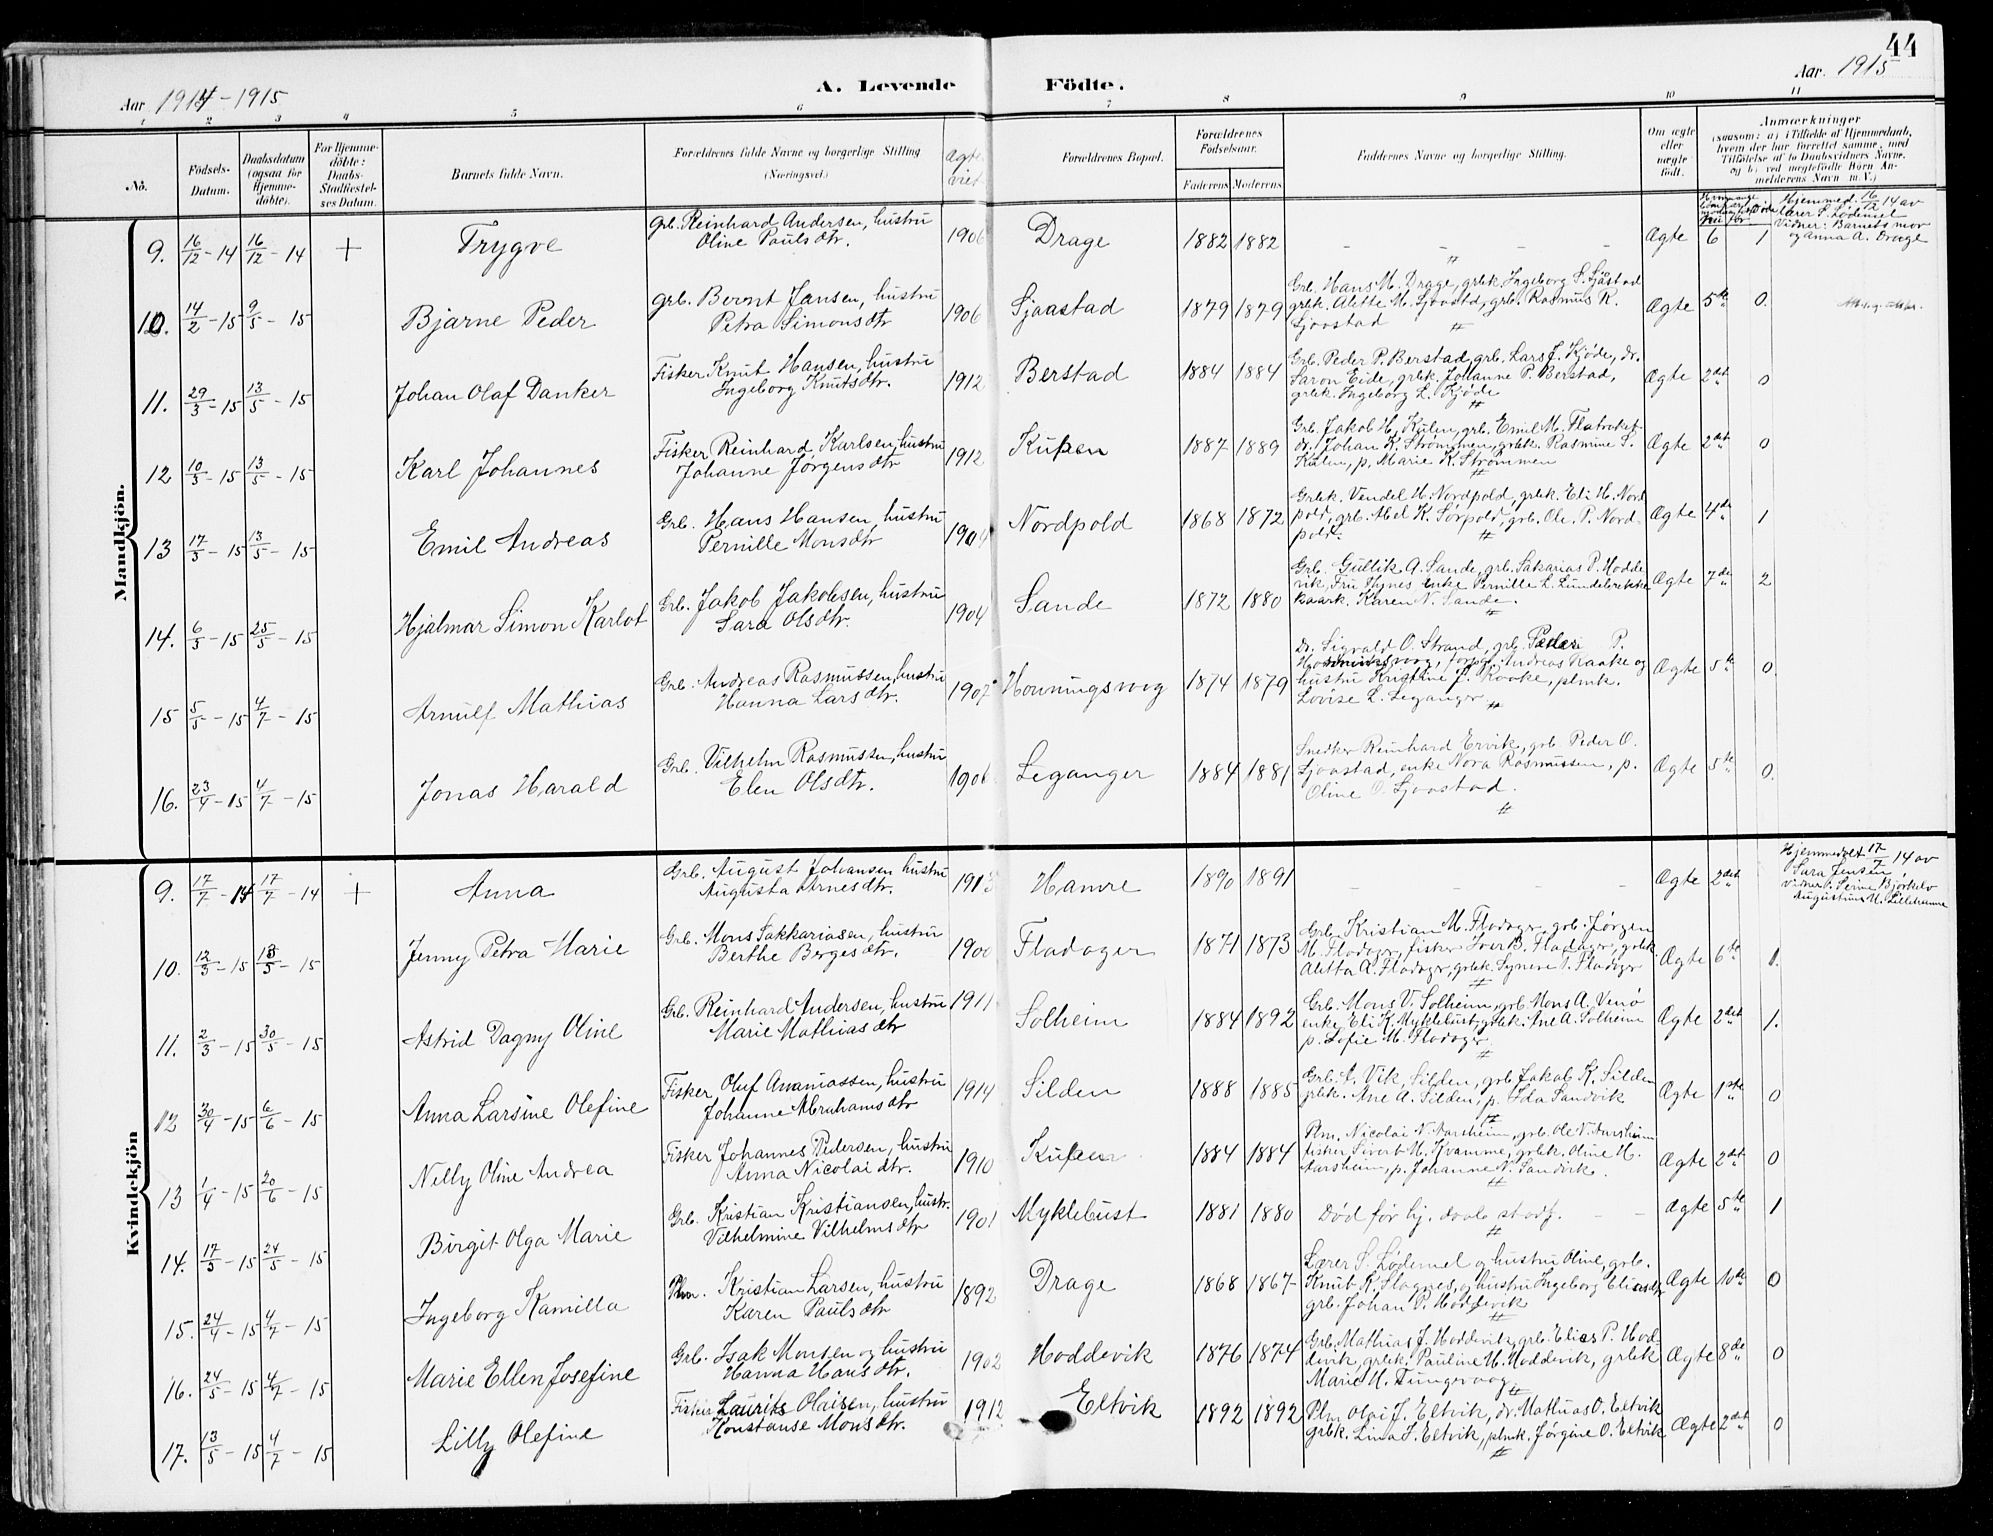 44
Aar 1914-1915 A. Levende Födte. Aar. 1915
1 2 3 4 5 6 7 8 9 10 11
No. Födsels-Datum. Daabsdatum (ogsaa for Hjemmedöbte). For Hjemmedöbte: Daabs-Stadfæstelses Datum. Barnets fulde Navn. Forældrenes fulde Navne og borgerlige Stilling (Næringsvei.) Ægteviet Forældrenes Bopæl. Forældrenes Födselsaar. Faderens Moderens Faddernes Navne og borgerlige Stilling. Om ægte eller uægte födt. Anmærkninger (saasom: a) i Tilfælde af Hjemmedaab, hvem der har forrettet samme, med Tilföielse af to Daabsvidners Navne, og b) ved uægtefödte Börn Anmelderens Navn m. V.)
Mandkjön.
9. 16/12-14 16/12-14 + Trygve Grb. Reinhard Andersen, hustru Oline Paulsdtr. 1906 Drage 1882 1882 – – – – – Ægte 6 1 Hjemmed. 16/12 14 av lærer S. Lødemel Vidner: Barnets mor og Anna A. Drage
10. 14/2-15 9/5-15 Bjarne Peder Grb. Bernt Jansen, hustru Petra Simonsdtr 1906 Sjaastad 1879 1879 Grb. Hans M. Drage, grbk. Ingeborg S. Sjåstad grbk. Alette M. Sjaastad, grb. Rasmus K. Sjaastad Ægte 5te 0.
11. 29/3-15 13/5-15 Johan Olaf Danker Fisker Knut Hansen, hustru Ingeborg Knutsdtr. 1912 Berstad 1884 1884 Grb. Peder P. Berstad, grb. Lars J. Kjøde, dr. Saron Eide, grbk. Johanne P. Berstad, grbk. Ingeborg L. Kjøde Ægte 2det 0
12 10/3-15 13/5-15 Karl Johannes Fisker Reinhard Karlsen, hustru Johanne Jørgensdtr 1912 1887 1889 Grb. Jakob H. Kulen, grb. Emil M. dr. Johan K. Strømmen, grbk. Rasmine S. Kulen, p. Marie K. Strømmen Ægte 2det 0
13 17/3-15 13/5-15 Emil Andreas Grb. Hans Hansen, hustru Pernille Monsdtr Nordpold 1868 1872 Grbk. Vendel H. Nordpold, grbk. Eli H. Nordpold, grb. Abel K. Sørpold, grb. Ole P. Nordpold. Ægte 4de 1
14. 6/3-15 25/5-15 Hjalmar Simon Karlot Grb. Jakob Jakobsen, hustru Sara Olsdtr. 1904 Sande 1872 1880 Grb. Gullik A. Sande, grb. Sakarias P. Hoddevik, Fru Hynes, enke Pernille L. Lundebrekke Karen N. Sande. Ægte 7de 2
15 5/5-15 4/7-15 Arnulf Mathias Grb. Andreas Rasmussen, hustru Hanna Larsdtr. 1907 Honningsvog 1874 1879 dr. Sigvald O. Strand, grb. Peder P. Honningsvog, forpgt. Andreas Raake og hustru Kristine J. Raake, plmk. Lovise L. Leganger Ægte 5te 0.
16. 23/4-15 4/7-15 Jonas Harald Grb. Vilhelm Rasmussen, hustru Elen Olsdtr. 1906 Leganger 1884 1881 Snedker Reinhard Ervik, grb Peder O. Sjaastad, enke Nora Rasmussen, p. Oline O. Sjaastad. Ægte 5te 0.
Kvindekjön
9. 17/7-14 17/7-14 + Anna Grb. August Johansen hustru Augusta Arnesdtr. 1913 Hamre 1890 1891 – – – – – Ægte 2det Hjemmedøbt 17/7 14 av Sara Jensen, vidner: Serine Bjørkelv Augustinus M. Lillehamre
10. 12/3-15 13/5-15 Jenny Petra Marie Grb. Mons Sakkariasen, hustru Berthe Børgesdtr. 1900 Fladager 1871 1873 Grb. Kristian M. Fladager, grb. Jørgen M. Fladager, fisker Iver B. Fladager, grbk. Aletta A. Fladager, grbk. Synere T. Fladager Ægte 6te 1.
11. 2/3-15 30/5-15 Astrid Dagny Oline Grb. Reinhard Andersen, hustru Marie Mathiasdtr 1911 Solheim 1884 1892 Grb. Mons V. Solheim, grb Mons A. Venø enke Eli K. Myklebust, grbk. Ane A. Solheim p. Sofie M. Fladager Ægte 2det 1.
12 30/4-15 6/6-15 Anna Larsine Olefine Fisker Oluf Ananiassen, hustru Johanne Abrahamsdtr 1914 Silden 1888 1885 Grb. A. Vik, Silden, grb Jakob K. Silden grbk. Ane A. Silden, p. Ida Sandvik Ægte 1ste 0
13 1/4-15 20/6-15 Nelly Oline Andrea Fisker Johannes Pedersen, hustru Anna Nicolaidtr. 1910 1884 1884 Plm. Nicolai N. Aarsheim, grb. Ole N. Aarsheim fisker Sivert M. Kvamme, grbk. Oline M. Aarsheim, p. Johanne N. Sandvik. Ægte 2det 0
14. 17/3-15 24/5-15 Birgit Olga Marie Grb. Kristian Kristiansen, hustr. Vilhelmine Vilhelmsdtr 1901 Myklebust 1881 1880 Død før hj. daab stadf. – – Ægte 5te 1
15. 24/4-15 4/7-15 Ingeborg Kamilla Plm. Kristian Larsen, hustru Karen Paulsdtr 1892 Drage 1868 1867 Lærer S. Lødemel og hustru Oline, grb. Knut K. Stagnes, og hustru Ingeborg Eliasdtr, grb. Johan P. Hoddevik Ægte 10de 0
16. 24/5-15 4/7-15 Marie Ellen Josefine Grb. Isak Monsen og hustru Hanna Hansdtr. 1902 Hoddevik 1876 1874 Grb. Mathias J. Hoddevik, grb. Elias P. Hoddevik, grbk. Pauline M. Hoddevik, grbk Marie M. Tungevaag. Ægte 8de 0
17. 13/5-15 4/7-15 Lilly Olefine Fisker Laurits Olaisen, hustru Konstanse Monsdtr. 1912 Eltvik 1892 1892 Plm Olai J. Eltvik, dr. Mathias O. Eltvik Grbk. Lina J. Eltvik, plmk. Jørgine O. Eltvik Ægte 2det 0